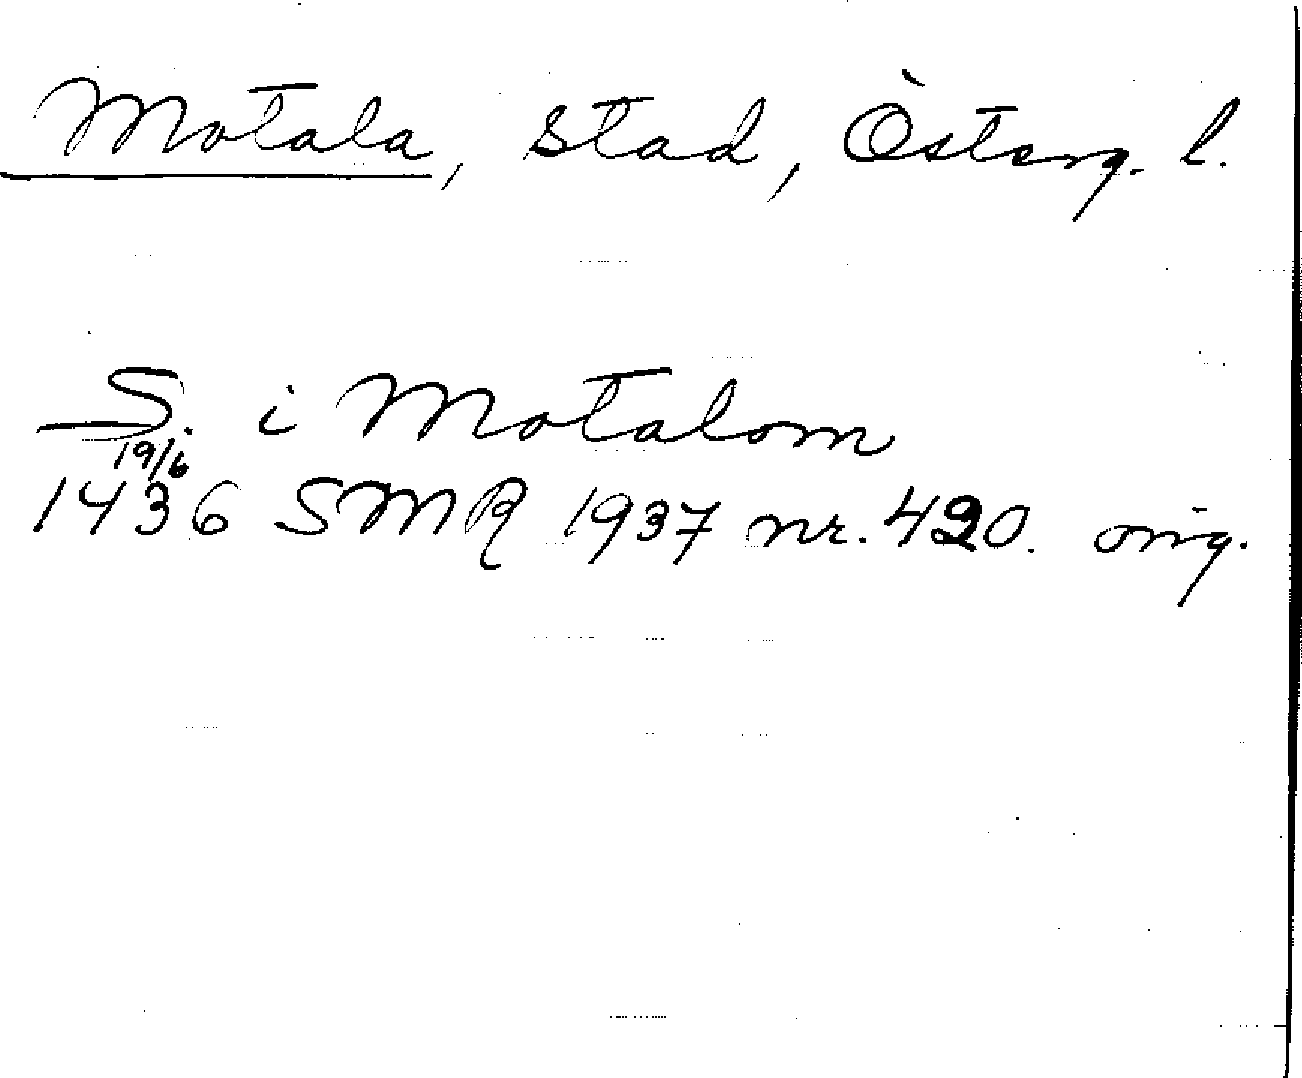 Motala, stad, Österg. l.
S. i Motalom
19/6
1436 SMR 1937 nr. 420. orig.